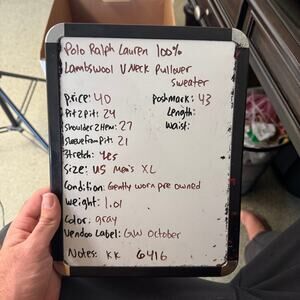 Polo Ralph Lauren 100%
Lambswool V Neck Pullover
sweater
Price: 40 Poshmark: 43
Pit 2 Pit: 24 Length:
Shoulder 2 Hem: 27 Waist:
Sleeve from Pit: 21
Stretch: Yes
Size: US Men's XL
Condition: Gently worn pre owned
Weight: 1.01
Color: gray
Vendoo Label: GW October
Notes: KK 6416